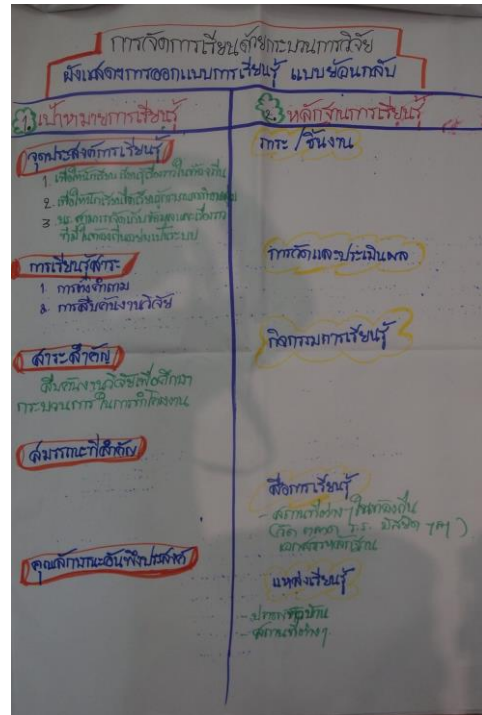 การจัดการเรียนด้วยกระบวนการวิจัย
ผังแสดงการออกแบบการเรียนรู้ แบบย้อนกลับ
1. เป้าหมายการเรียนรู้
จุดประสงค์การเรียนรู้
1. เพื่อให้นักเรียน เรียนรู้เรื่องราวในท้องถิ่น
2. เพื่อให้นักเรียน
3. นร. สามารถ
ที่มีในท้องถิ่นอย่างเป็นระบบ
การเรียนรู้สาระ
1. การตั้งคำถาม
2. การสืบค้นงานวิจัย
สาระสำคัญ
สืบค้นงานวิจัยเพื่อศึกษา
กระบวนการ ในการทำโครงงาน
สมรรถนะที่สำคัญ
คุณลักษณะอันพึงประสงค์
2. หลักฐานการเรียนรู้
ภาระ / ชิ้นงาน
การวัดและประเมินผล
กิจกรรมการเรียนรู้
สื่อการเรียนรู้
- สถานที่ต่างๆ ในท้องถิ่น
(วัด ตลาด ร.ร. มัสยิด ฯลฯ)
เอกสารหลักฐาน
แหล่งเรียนรู้
- ปราชญ์ชาวบ้าน
- สถานที่ต่างๆ